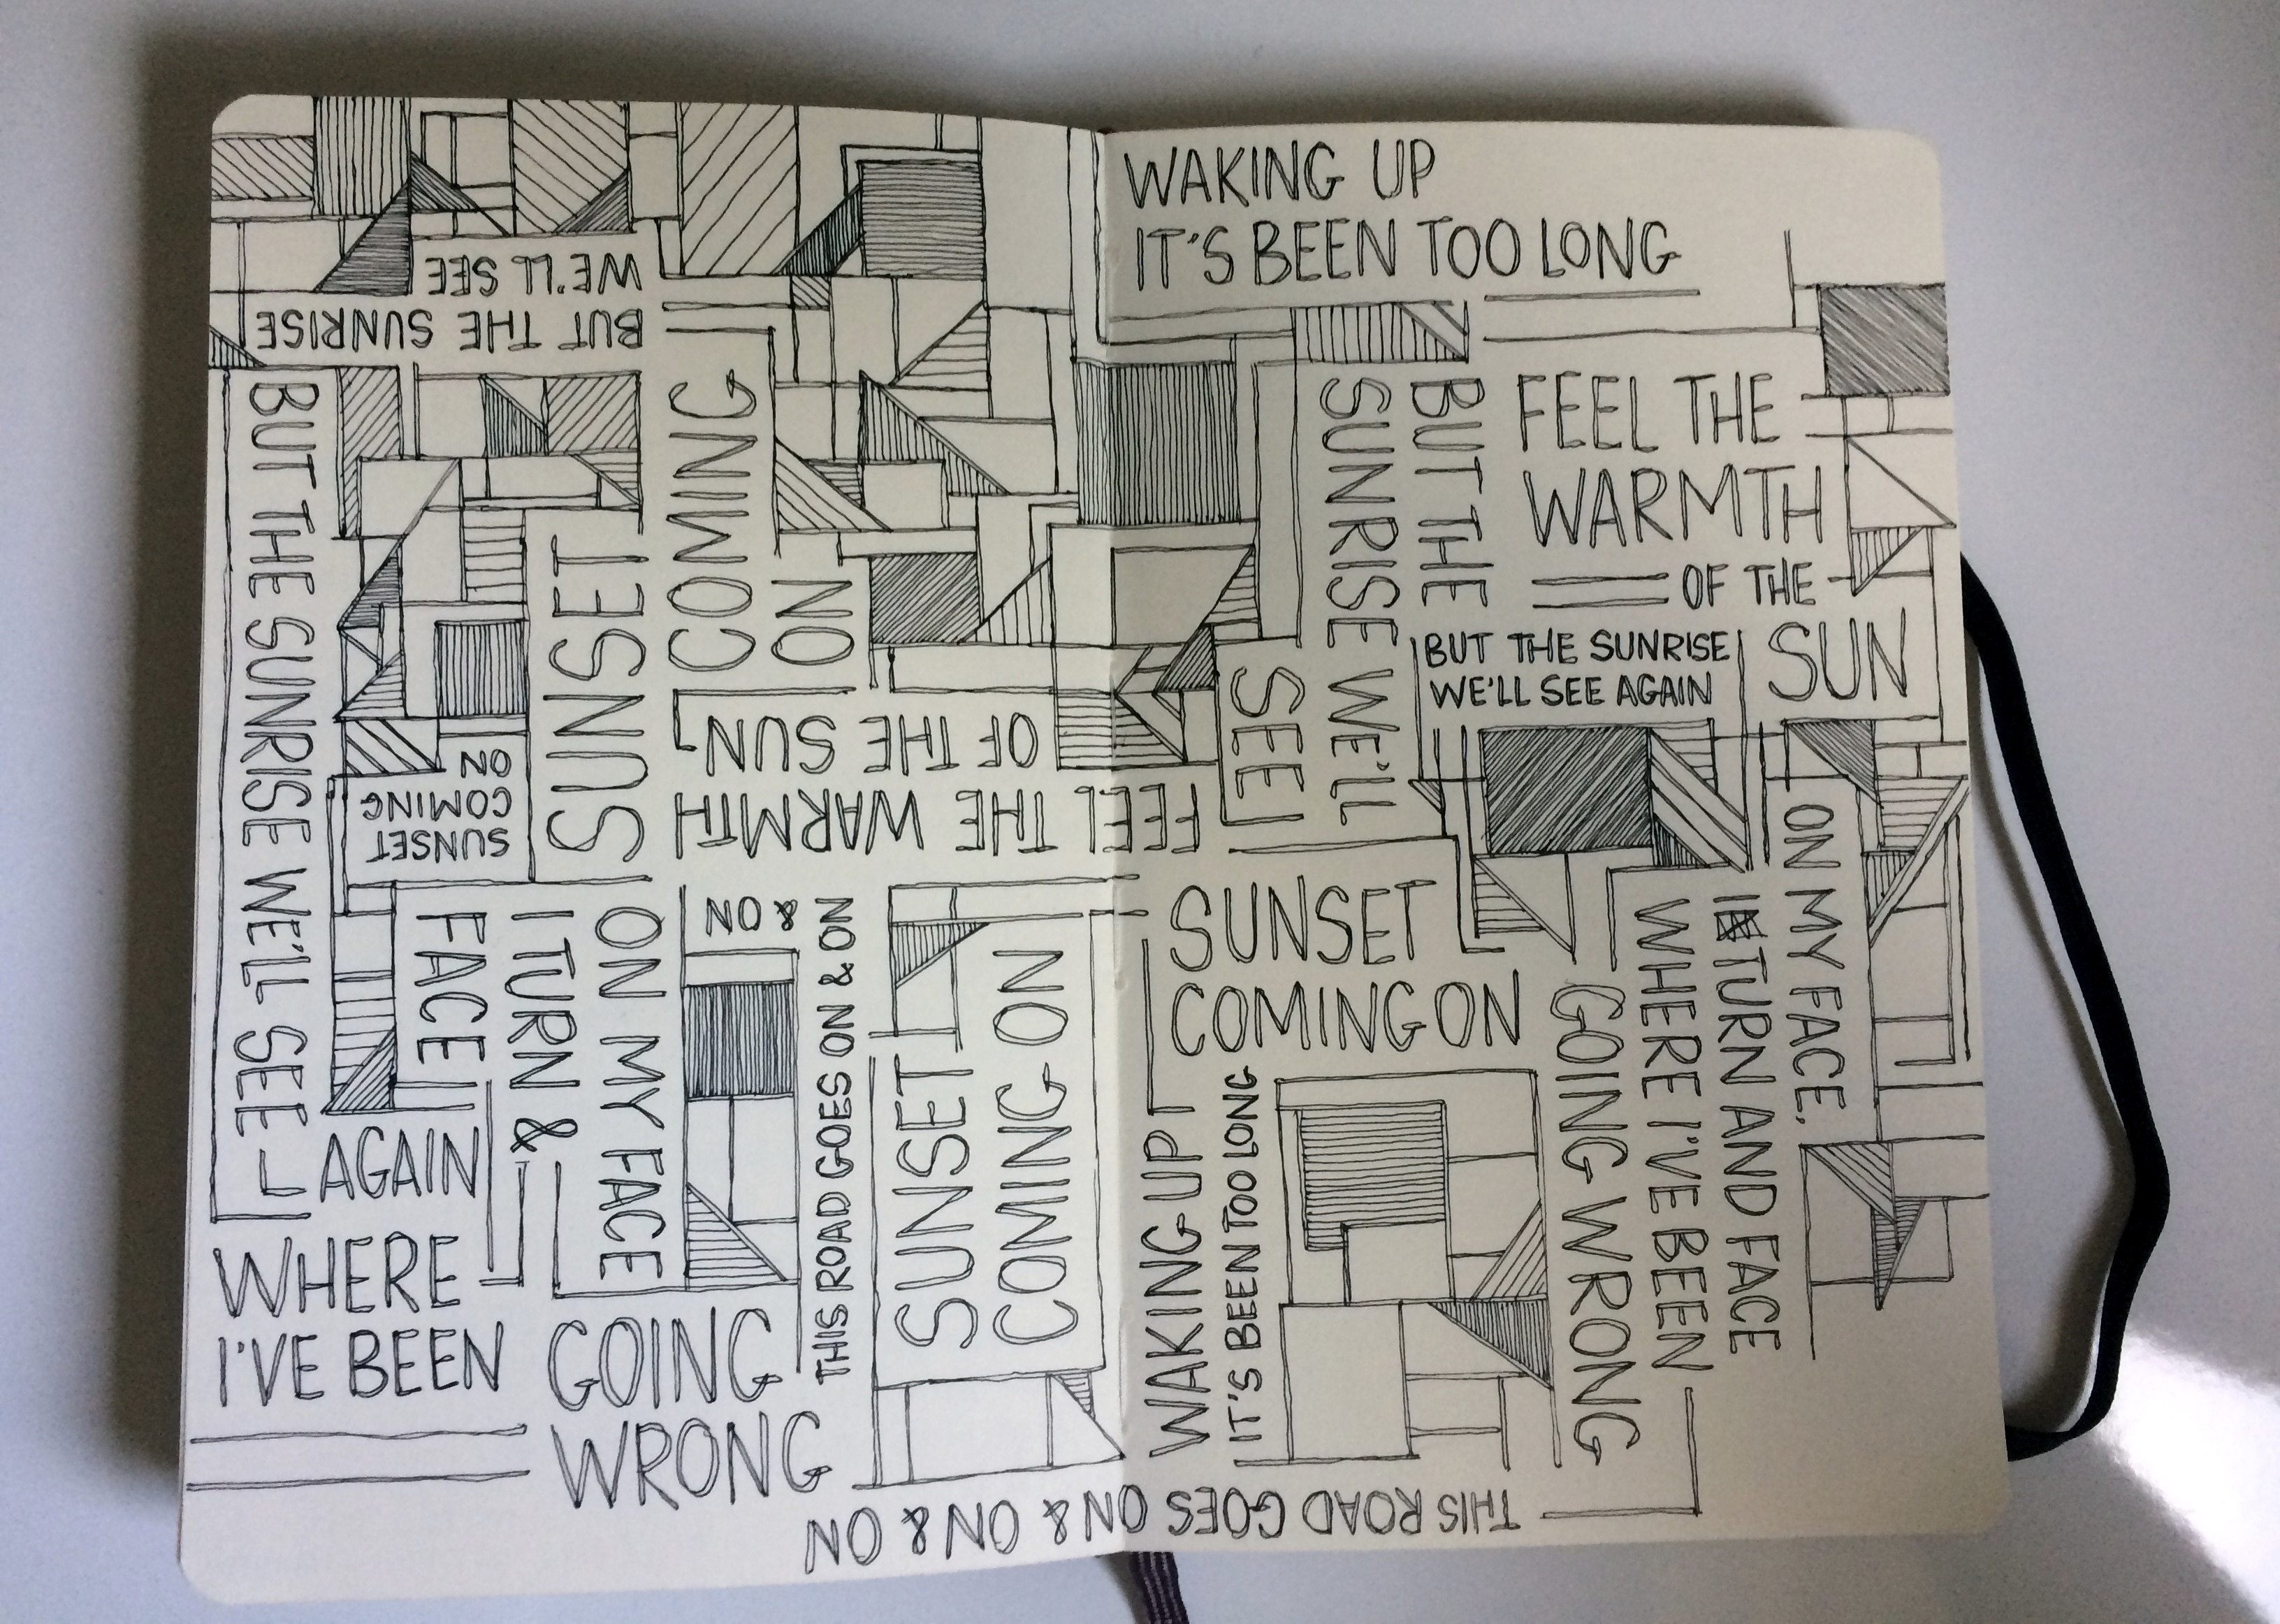 WE'LL SEE
BUT THE SUNRISE
BUT THE SUNRISE WE'LL SEE
AGAIN
SUNSET
COMING
ON
SUNSET
COMING
ON
FEEL THE WARMTH
OF THE SUN,
ON MY FACE
I TURN &
FACE
WHERE
I'VE BEEN
GOING
WRONG
THIS ROAD GOES ON & ON
& ON
SUNSET
COMING ON
WAKING UP
IT'S BEEN TOO LONG
FEEL THE
WARMTH
OF THE
SUN
ON MY FACE,
I TURN AND FACE
WHERE I'VE BEEN
GOING WRONG
BUT THE
SUNRISE WE'LL
SEE
BUT THE SUNRISE
WE'LL SEE AGAIN
SUNSET
COMING ON
WAKING UP
IT'S BEEN TOO LONG
THIS ROAD GOES ON & ON & ON & ON